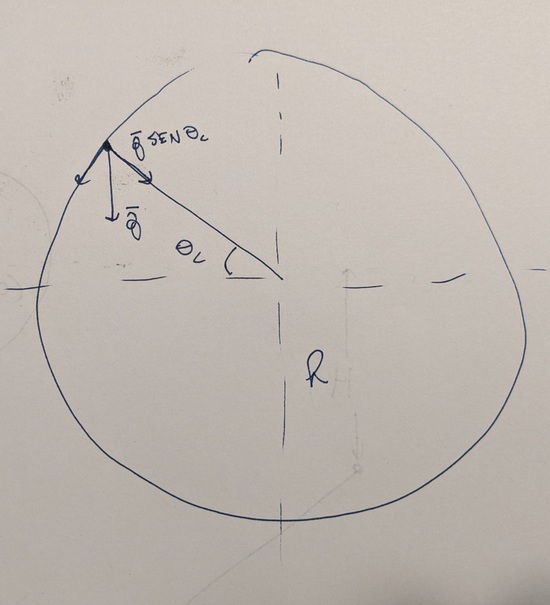 g̅ SEN θ_L
g̅
θ_L
R